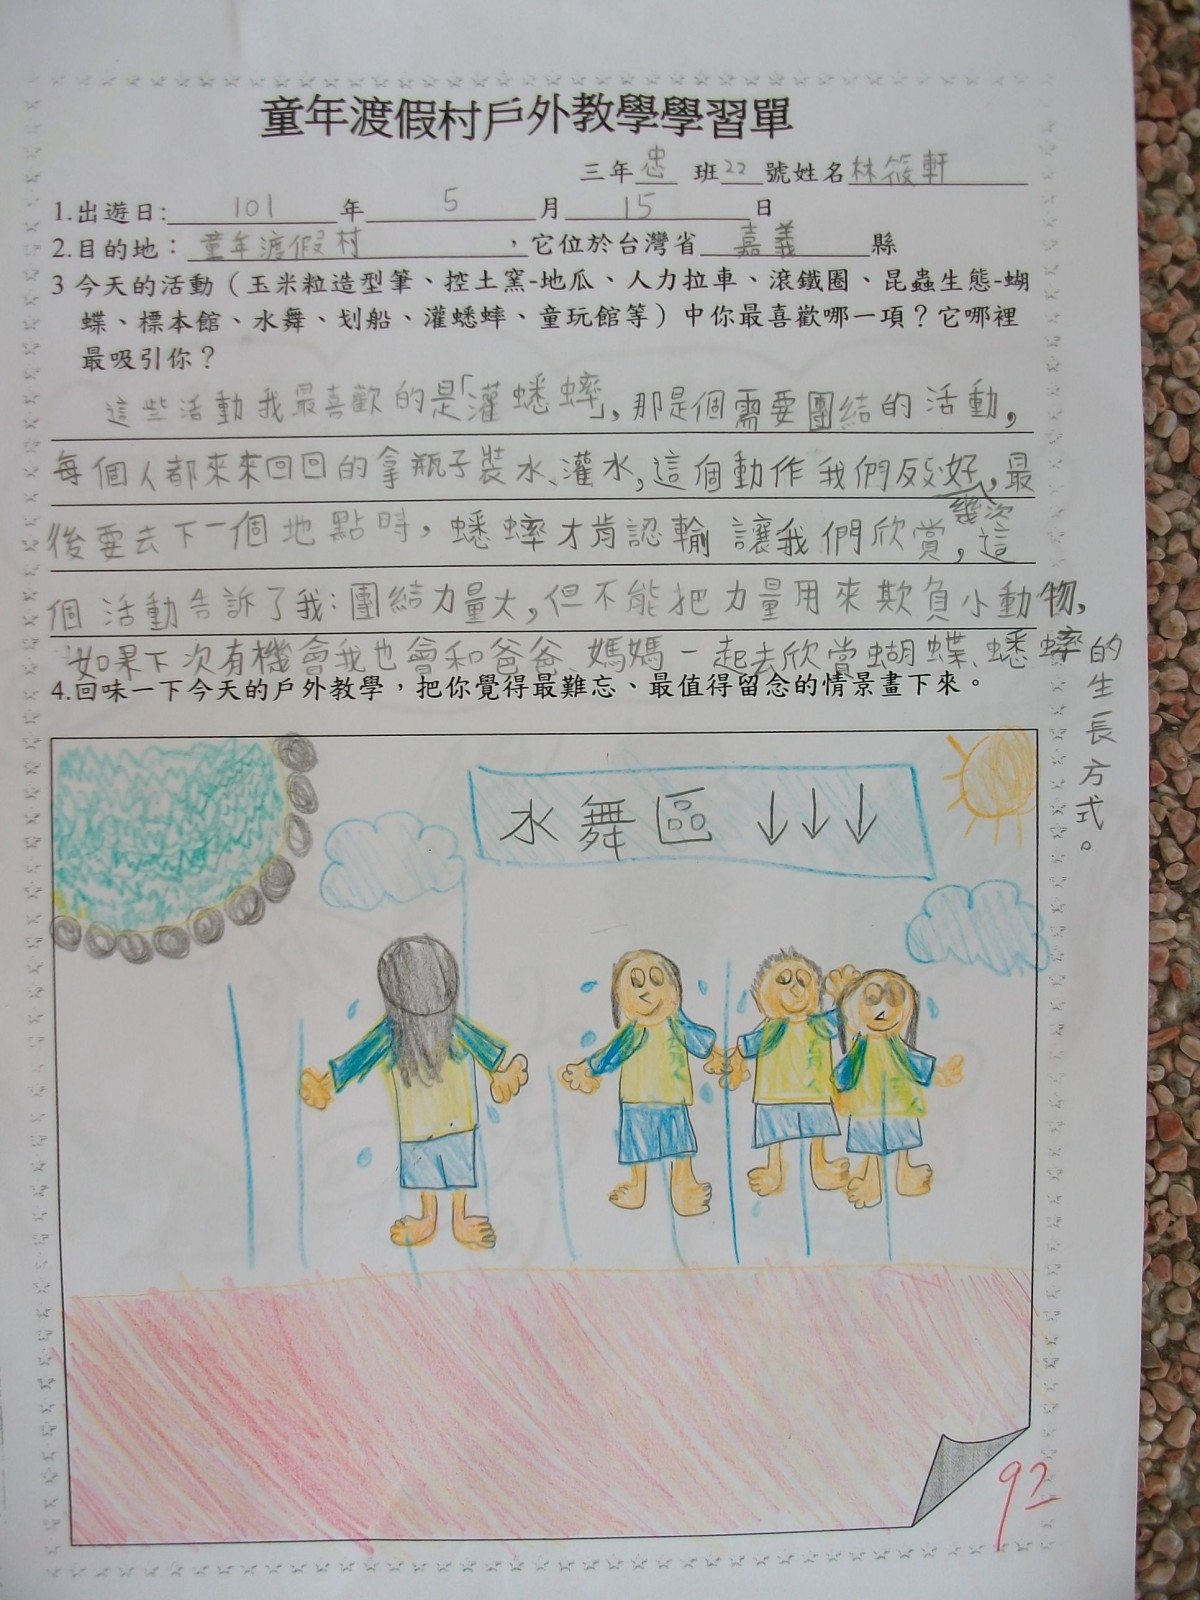 童年渡假村戶外教學學習單
三年忠班22號姓名林筱軒
1.出遊日:101年5月15日
2.目的地：童年渡假村，它位於台灣省嘉義縣
3 今天的活動（玉米粒造型筆、控土窯-地瓜、人力拉車、滾鐵圈、昆蟲生態-蝴
蝶、標本館、水舞、划船、灌蟋蟀、童玩館等）中你最喜歡哪一項？它哪裡
最吸引你？
這些活動我最喜歡的是「灌蟋蟀」，那是個需要團結的活動，
每個人都來來回回的拿瓶子裝水、灌水，這個動作我們反好幾次，最
後要去下一個地點時，蟋蟀才肯認輸讓我們欣賞，這
個活動告訴了我：團結力量大，但不能把力量用來欺負小動物，
如果下次有機會我也會和爸爸、媽媽一起去欣賞蝴蝶、蟋蟀的生長方式。
4.回味一下今天的戶外教學，把你覺得最難忘、最值得留念的情景畫下來。
水舞區 ↓↓↓
92